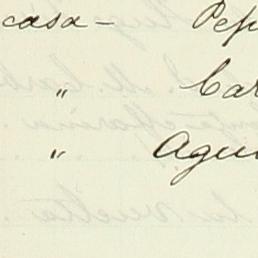 casa – Pep
" Car
" Agu